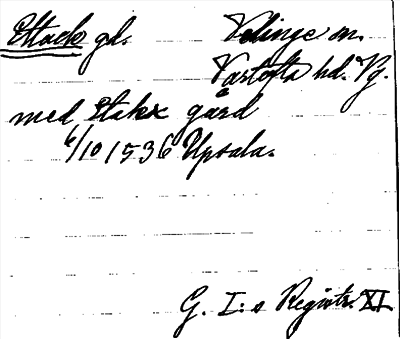 Ettack gd. Velinge sn.
Vartofta hd. Vg.
med Etakx gård
6/10 1536 Upsala.
G. I:s Registr. XI